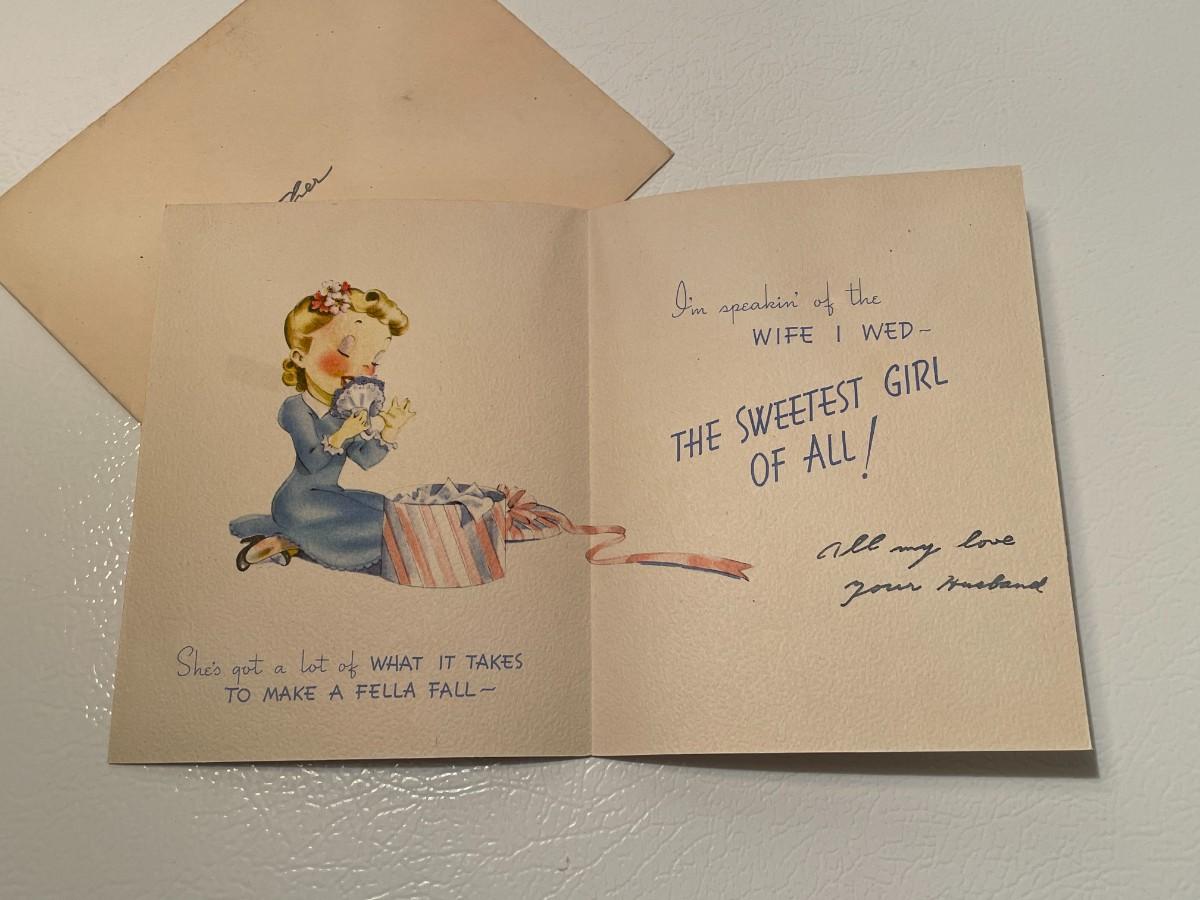 She's got a lot of WHAT IT TAKES
TO MAKE A FELLA FALL~
I'm speakin' of the
WIFE I WED~
THE SWEETEST GIRL
OF ALL!
All my love
your Husband